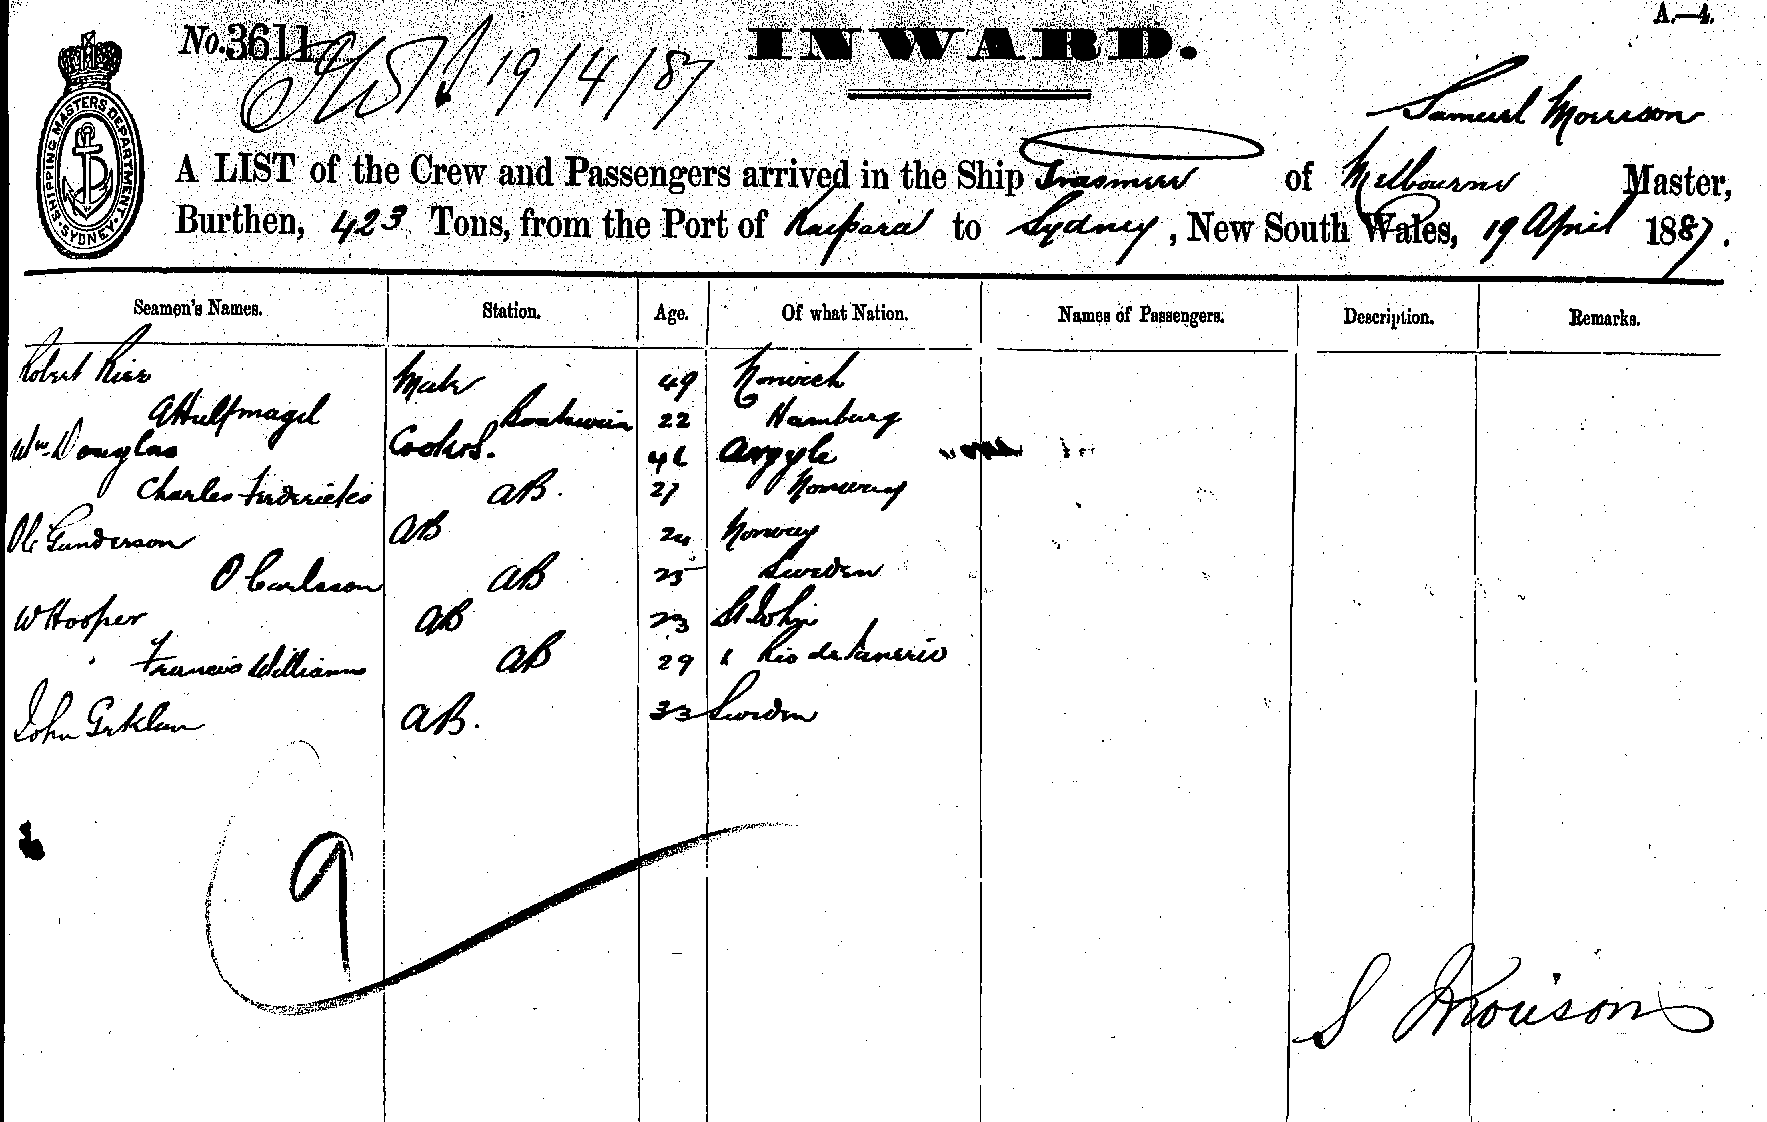 A.—4.
No. 3611
INWARD.
19/4/87
SHIPPING MASTERS DEPARTMENT SYDNEY
Samuel Morrison
A LIST of the Crew and Passengers arrived in the Ship of Melbourne Master,
Burthen, 423 Tons, from the Port of Kaipara to Sydney, New South Wales, 19 April 1887.
Seamen's Names. Station. Age. Of what Nation. Names of Passengers. Description. Remarks.
Robert Mate 49 Norwich
Boatswain 22 Hamburg
Wm. Douglas Cook &S. Argyle
Charles Fredericks AB. 27 Norway
Ole Gunderson AB 24 Norway
O Carlsson AB 25 Sweden
W Hooper AB 23 St John
Francis Williams AB 29 Rio de Janerio
John AB. 33 Sweden
9
S Morrison